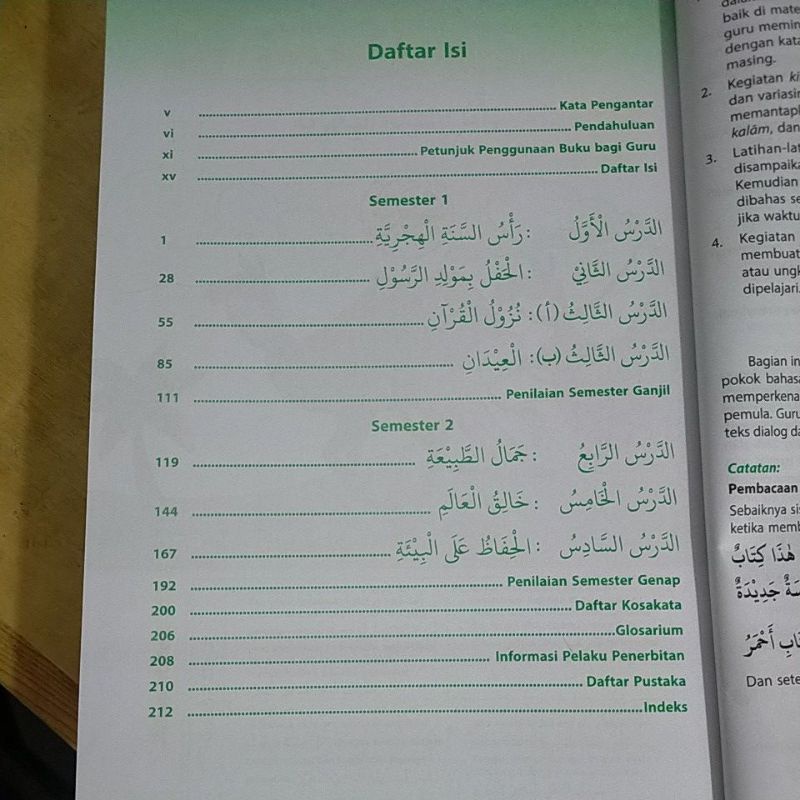 Daftar Isi
Kata Pengantar ........ v
Pendahuluan ........ vi
Petunjuk Penggunaan Buku bagi Guru ........ xi
Daftar Isi ........ xv
Semester 1
الدَّرْسُ الْأَوَّلُ : رَأْسُ السَّنَةِ الْهِجْرِيَّةِ ........ 1
الدَّرْسُ الثَّانِيْ : الْحَفْلُ بِمَوْلِدِ الرَّسُوْلِ ........ 28
الدَّرْسُ الثَّالِثُ (أ): نُزُوْلُ الْقُرْآنِ ........ 55
الدَّرْسُ الثَّالِثُ (ب): الْعِيْدَانِ ........ 85
Penilaian Semester Ganjil ........ 111
Semester 2
الدَّرْسُ الرَّابِعُ : جَمَالُ الطَّبِيْعَةِ ........ 119
الدَّرْسُ الْخَامِسُ : خَالِقُ الْعَالَمِ ........ 144
الدَّرْسُ السَّادِسُ : الْحِفَاظُ عَلَى الْبِيْئَةِ ........ 167
Penilaian Semester Genap ........ 192
Daftar Kosakata ........ 200
Glosarium ........ 206
Informasi Pelaku Penerbitan ........ 208
Daftar Pustaka ........ 210
Indeks ........ 212
baik di mate
guru memin
dengan kata
masing.
2. Kegiatan ki
dan variasin
memantapk
kalâm, dan
3. Latihan-lat
disampaika
Kemudian
dibahas se
jika waktu
4. Kegiatan
membuat
atau ungk
dipelajari.
Bagian in
pokok bahasa
memperkena
pemula. Guru
teks dialog da
Catatan:
Pembacaan
Sebaiknya sis
ketika memb
هٰذَا كِتَابٌ
جَدِيْدَةٌ
أَحْمَرُ
Dan sete